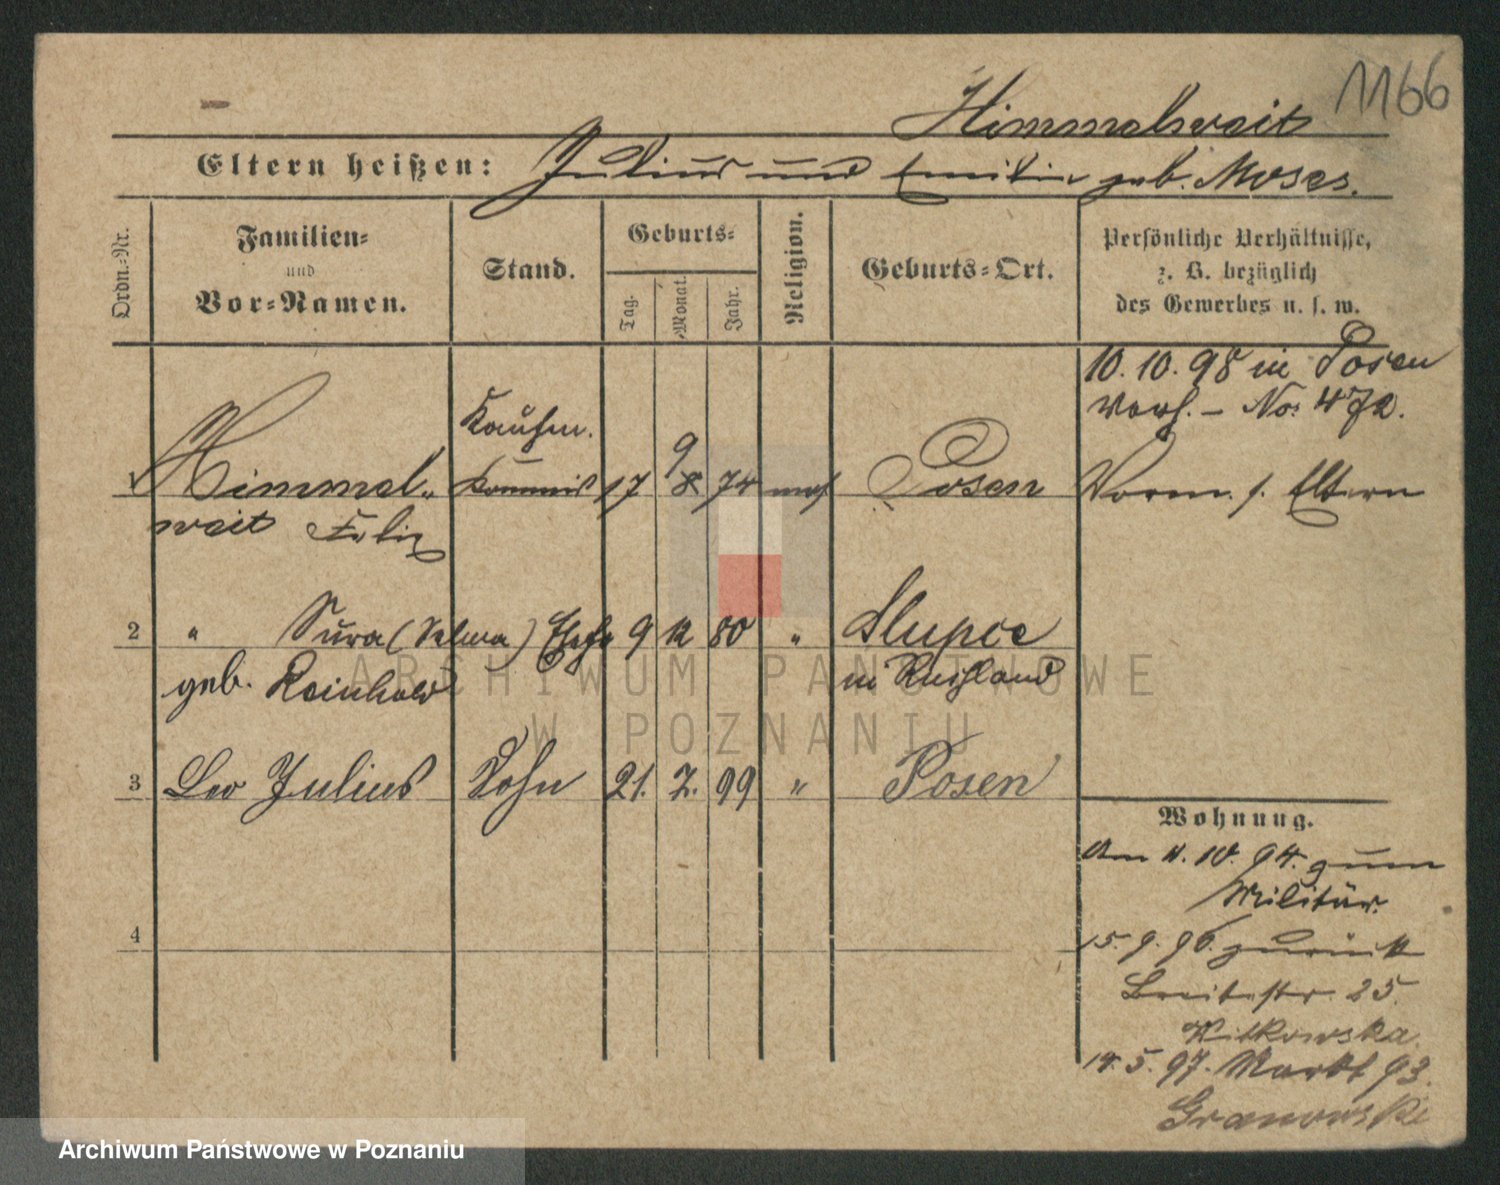 1166
Himmelweit
Eltern heißen: Julius und Emilie geb. Moses.
Ordn.-Nr.
Familien-
und
Vor-Namen.
Stand.
Geburts-
Tag.
Monat.
Jahr.
Religion.
Geburts-Ort.
Persönliche Verhältnisse,
z. B. bezüglich
des Gewerbes u. s. w.
10. 10. 98 in Posen
verh. – No: 472.
Kaufm.
9
1 Himmel- Kommis 17 8 74 mos Posen Vorm. s. Eltern
weit Felix
2 " Sura (Selma) Ehefr 9 12 80 " Slupce
geb. Reinhold in Rußland
3 Leo Julius Sohn 21. 7. 99 " Posen
4
Wohnung.
Am 11. 10. 94. zum
Militär.
15. 9. 96. zurück
Breitestr. 25.
Witkowska.
14. 5. 97. Markt 93.
Granowski
ARCHIWUM PAŃSTWOWE
W POZNANIU
Archiwum Państwowe w Poznaniu